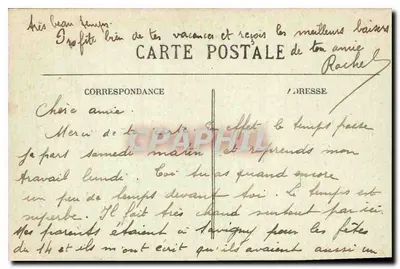 très beau temps.
Profite bien de tes vacances et reçois les meilleurs baisers
de ton amie
CARTE POSTALE
Rachel
CORRESPONDANCE
ADRESSE
Chère amie.
Merci de ta carte en effet le temps passe
je pars samedi matin et reprends mon
travail lundi. Toi tu as quand encore
un peu de temps devant toi. Le temps est
superbe. Il fait très chaud surtout par ici.
Mes parents étaient à Savigny pour les fêtes
du 14 et ils m'ont écrit qu'ils avaient aussi un